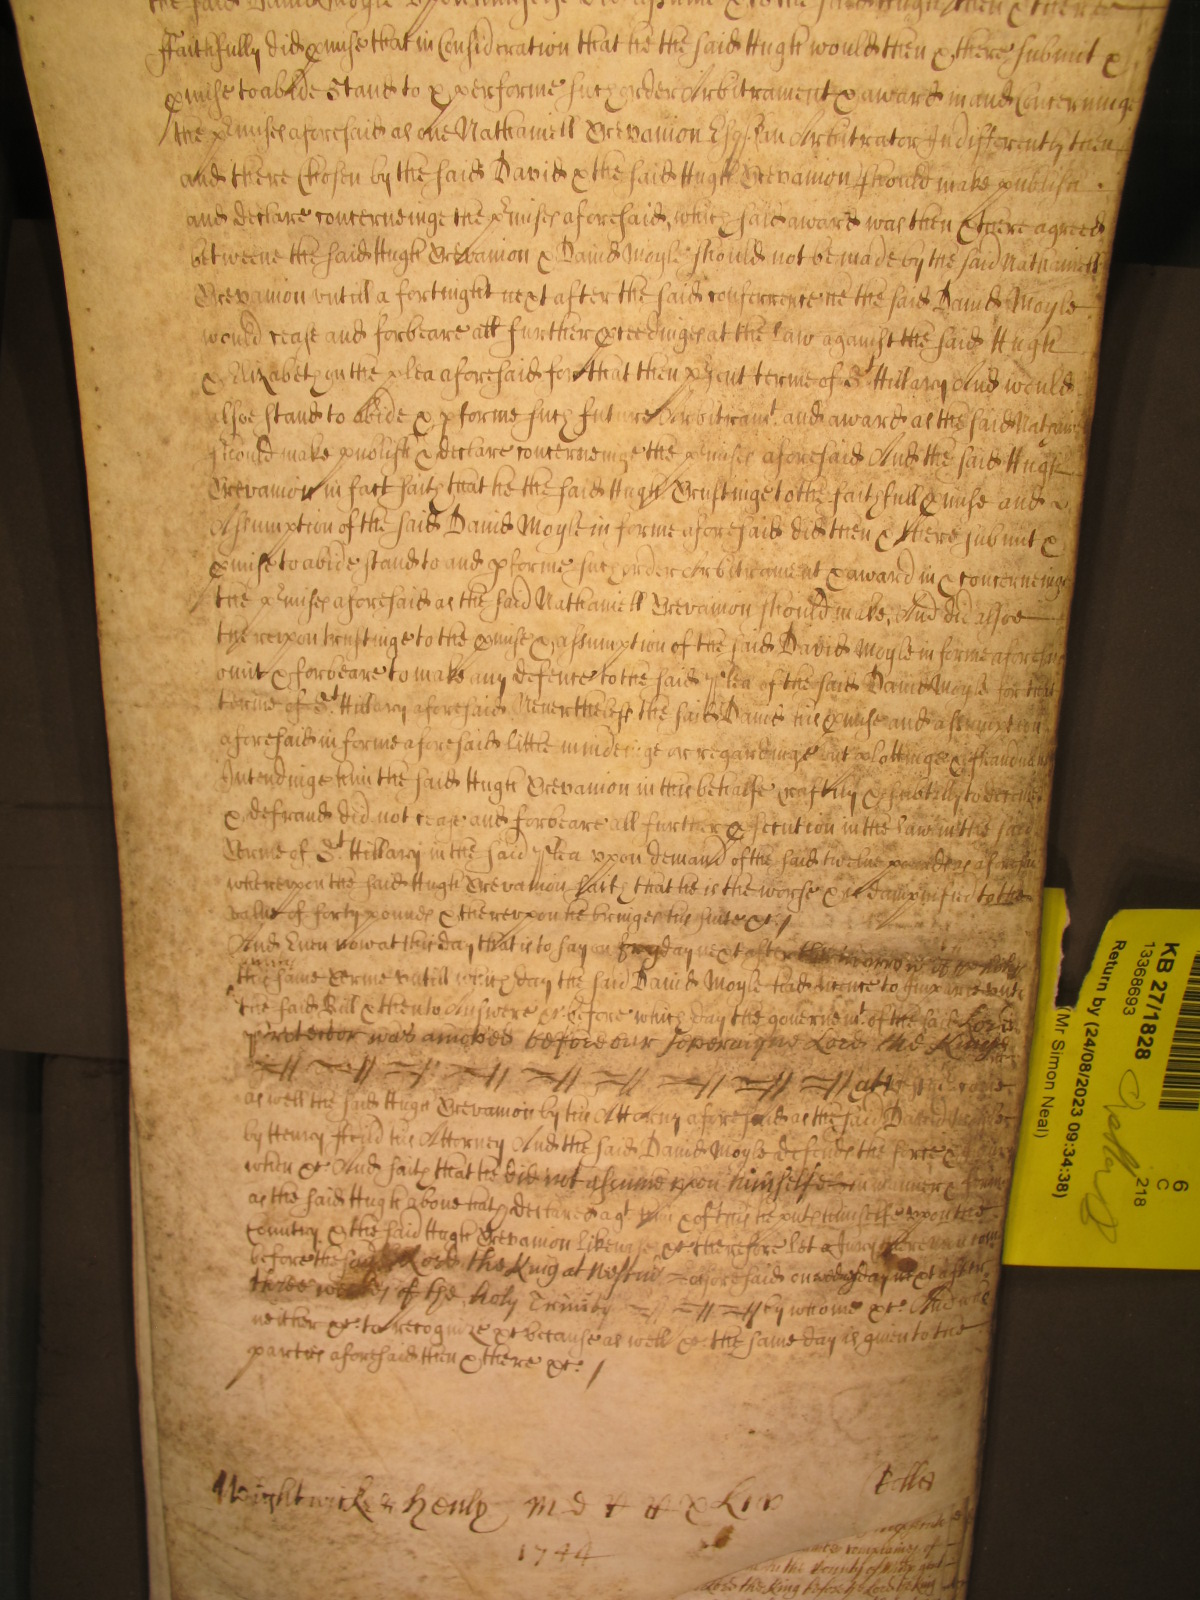 the said David Moyle upon himselfe did assume & to the said Hugh then & there
ffaithfully did pmise that in Consideracion that he the said Hugh would then & there submit &
pmise to abide Stand to & pforme such order Arbitrament & award in and Concerninge
the pmisses aforesaid as one Nathaniell Trevanion Esqr an Arbitrator Indifferently then
and there Chosen by the said David & the said Hugh Trevanion should make publish
and declare concerneinge the pmisses aforesaid, which said award was then & there agreed
betweene the said Hugh Trevanion & David Moyle should not be made by the said Nathaniell
Trevanion vntill a fortnight next after the said conference he the said David Moyle
would cease and forbeare all further pceedinges at the law against the said Hugh
& Elizabeth in the plea aforesaid for that then psent terme of St Hillary And would
alsoe stand to abide & pforme such future Arbitramt and award as the said Nathaniell
should make publish & declare concerneinge the pmisses aforesaid And the said Hugh
Trevanion in fact saith that he the said Hugh Trustinge to the faithfull pmise and
Assumption of the said David Moyle in forme aforesaid did then & there submit &
pmise to abide stand to and pforme such order Arbitrament & award in & concerneinge
the pmisses aforesaid as the said Nathaniell Trevanion should make, And did alsoe
therevpon trustinge to the pmise & assumption of the said David Moyle in forme aforesaid
omit & forbeare to make any defence to the said Plea of the said David Moyle for that
terme of St Hillary aforesaid Neverthelesse the said David his pmise and assumption
aforesaid in forme aforesaid little mindeinge or regardinge but plottinge & fraudulently
Intendinge him the said Hugh Trevanion in this behalfe craftily & subtilly to deceive
& defraud did not cease and forbeare all further psecution in the law in the said
Terme of St Hillary in the said Plea vpon demand of the said twelve poundes aforesaid
wherevpon the said Hugh Trevanion saith that he is the worse & is dampnified to the
value of forty poundes & therevpon he bringes his suite &c /
And Now at this day that is to say on fryday next after the morrow of the holy
trinity
this same Terme vntill which day the said David Moyle had licence to Imparle vnto
the said Bill & then to Answere &c before which day the governemt of the said Lord
Protector was amoved before our Sovereigne Lord the Kinge
att Westm come
as well the said Hugh Trevanion by his Attorny aforesaid as the said David Moyle
by Henry ffend his Attorney And the said David Moyle defends the force &
when &c And saith that he did not assume vpon himselfe in manner & forme
as the said Hugh above hath declared agt him & of this he putts himselfe vpon the
Country & the said Hugh Trevanion likewise &c therefore let a Jury therevpon come
before the said Lord the King at Westmr aforesaid on wedsday next after
three weekes of the holy Trinity by whome &c And who
neither &c to recognize &c because as well &c the same day is given to the
parties aforesaid then & there &c /
Wightwick & Henly
1744
Lord the King before the Lord the King
KB 27/1828
13368693
Return by (24/08/2023 09:34:38)
(Mr Simon Neal)
6
C
218